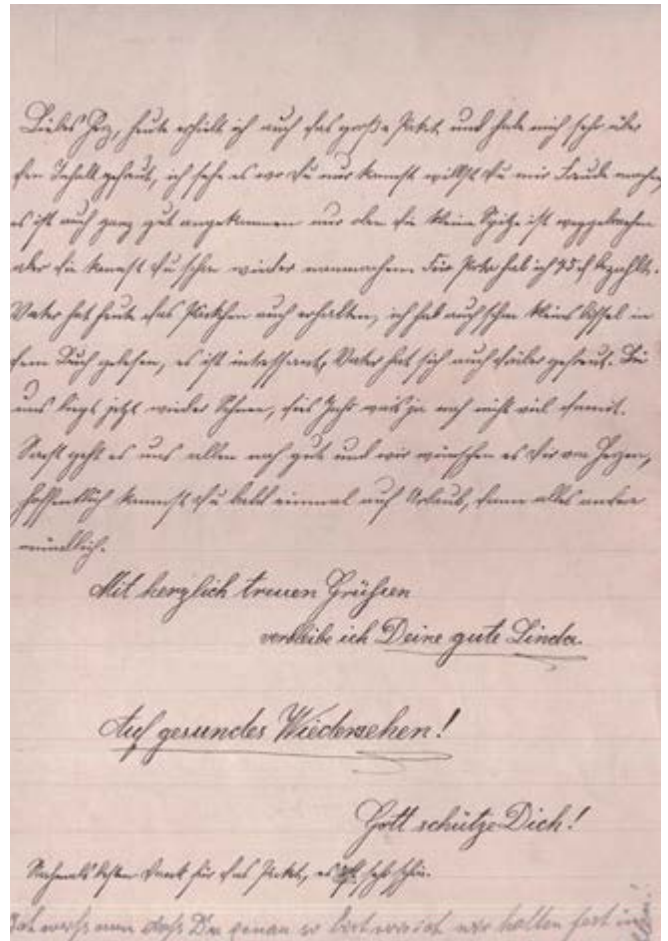 Liebes Herz, heute erhielt ich auch das große Paket und habe mich sehr über
den Inhalt gefreut, ich sehe es wo du nur kannst willst du mir Freude machen,
es ist auch ganz gut angekommen nur oben die kleine Spitze ist weggebrochen
aber die kannst du schon wieder machen. Für Porto hab ich 75 d bezahlt.
Vater hat heute das Päckchen auch erhalten, ich hab auch schon kleins bissel in
dem Buch gelesen, es ist intressant, Vater hat sich auch drüber gefreut. Bei
uns liegt jetzt wieder Schnee, dies Jahr noch nicht viel damit.
Sonst geht es uns allen noch gut und wir wünschen es dir von Herzen,
hoffentlich kommst du bald einmal auf Urlaub, dann alles andere
mündlich.
Mit herzlich treuen Grüßen
verbleibe ich Deine gute Linda.
Auf gesundes Wiedersehen!
Gott schütze Dich!
Nochmals besten Dank für das Paket, es ist sehr schön.
daß Du genau so wir halten fest